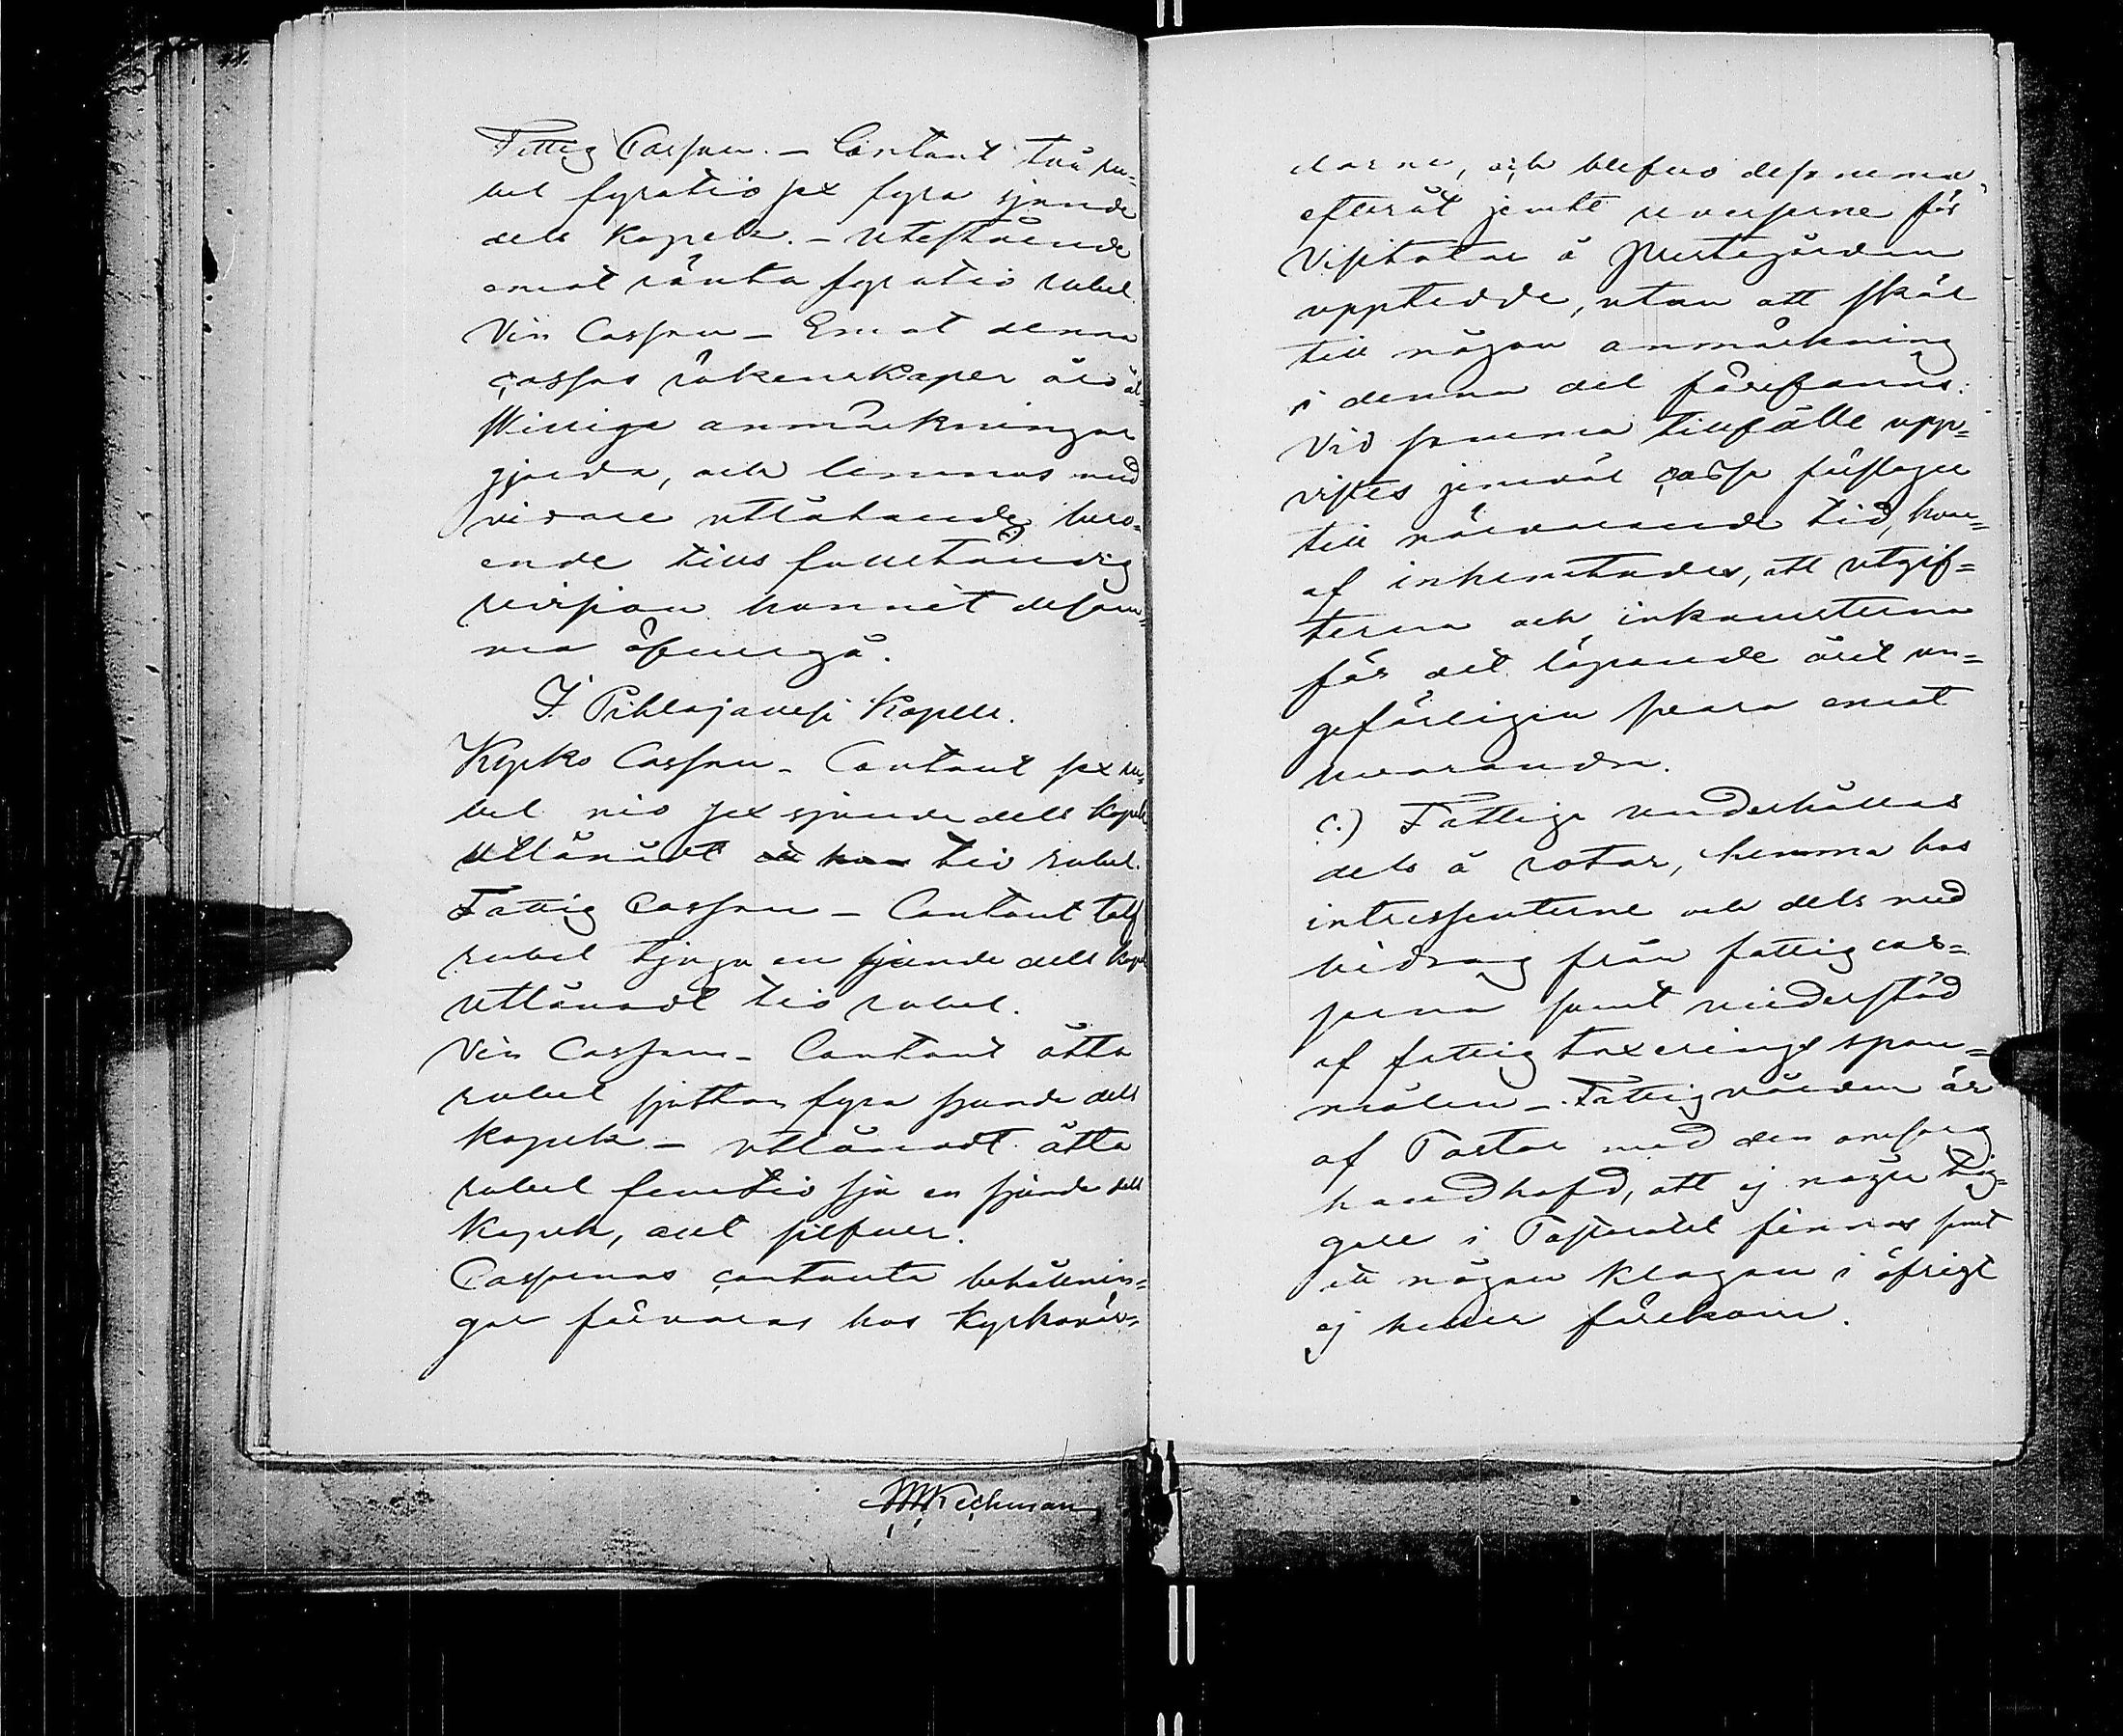 Fattig Cassan. – Contant två ru-
bel fyratio sex fyra sjunde
dels kopek. – Utestående
emot ränta fyratio rubel
Vin Cassan – Emot denna
cassas räkenskaper äro åt-
skilliga anmärkningar
gjorda, och lemnas med
vidare utlåtande bero-
ende tills fullständig
revision hunnit desam-
ma öfvergå.
I. Pihlajavesi Kapell.
Kyrko Cassan – Contant sex ru-
bel nio sex sjunde dels kopek
Utlånadt tio rubel.
Fattig Cassan – Contant tolf
rubel tjugu en sjunde dels kopek
utlånadt tio rubel.
Vin Cassan – Contant åtta
rubel sjutton fyra sjunde dels
kopek – utlånadt åtta
rubel femtio sju en sjunde dels
kopek, allt silfver.
Cassornas contanta behållnin-
gar förvaras hos kyrkovär-
darne, och blefvo desamma
efteråt jemte reverserne för
Visitator å Prestegården
uppteddde, utan att skäl
till någon anmärkning
i denna del förefanns.
Vid samma tillfälle upp-
vistes jemväl cassa förslager
till närvarande tid, hvar-
af inhemtades, att utgif-
terna och inkomsterna
för det löpande året un-
gefärligen svara emot
hvarandra.
c.) Fattige underhållas
dels å rotar, hemma hos
intressenterne och dels med
bidrag från fattig cas-
sorna samt understöd
af fattig taxerings span-
målen – Fattigvården är
af Pastor med den omsorg
handhafd, att ej någre tig-
gare i Pastoratet finnas samt
att någon klagan i öfrigt
ej heller förekom.
MKechman